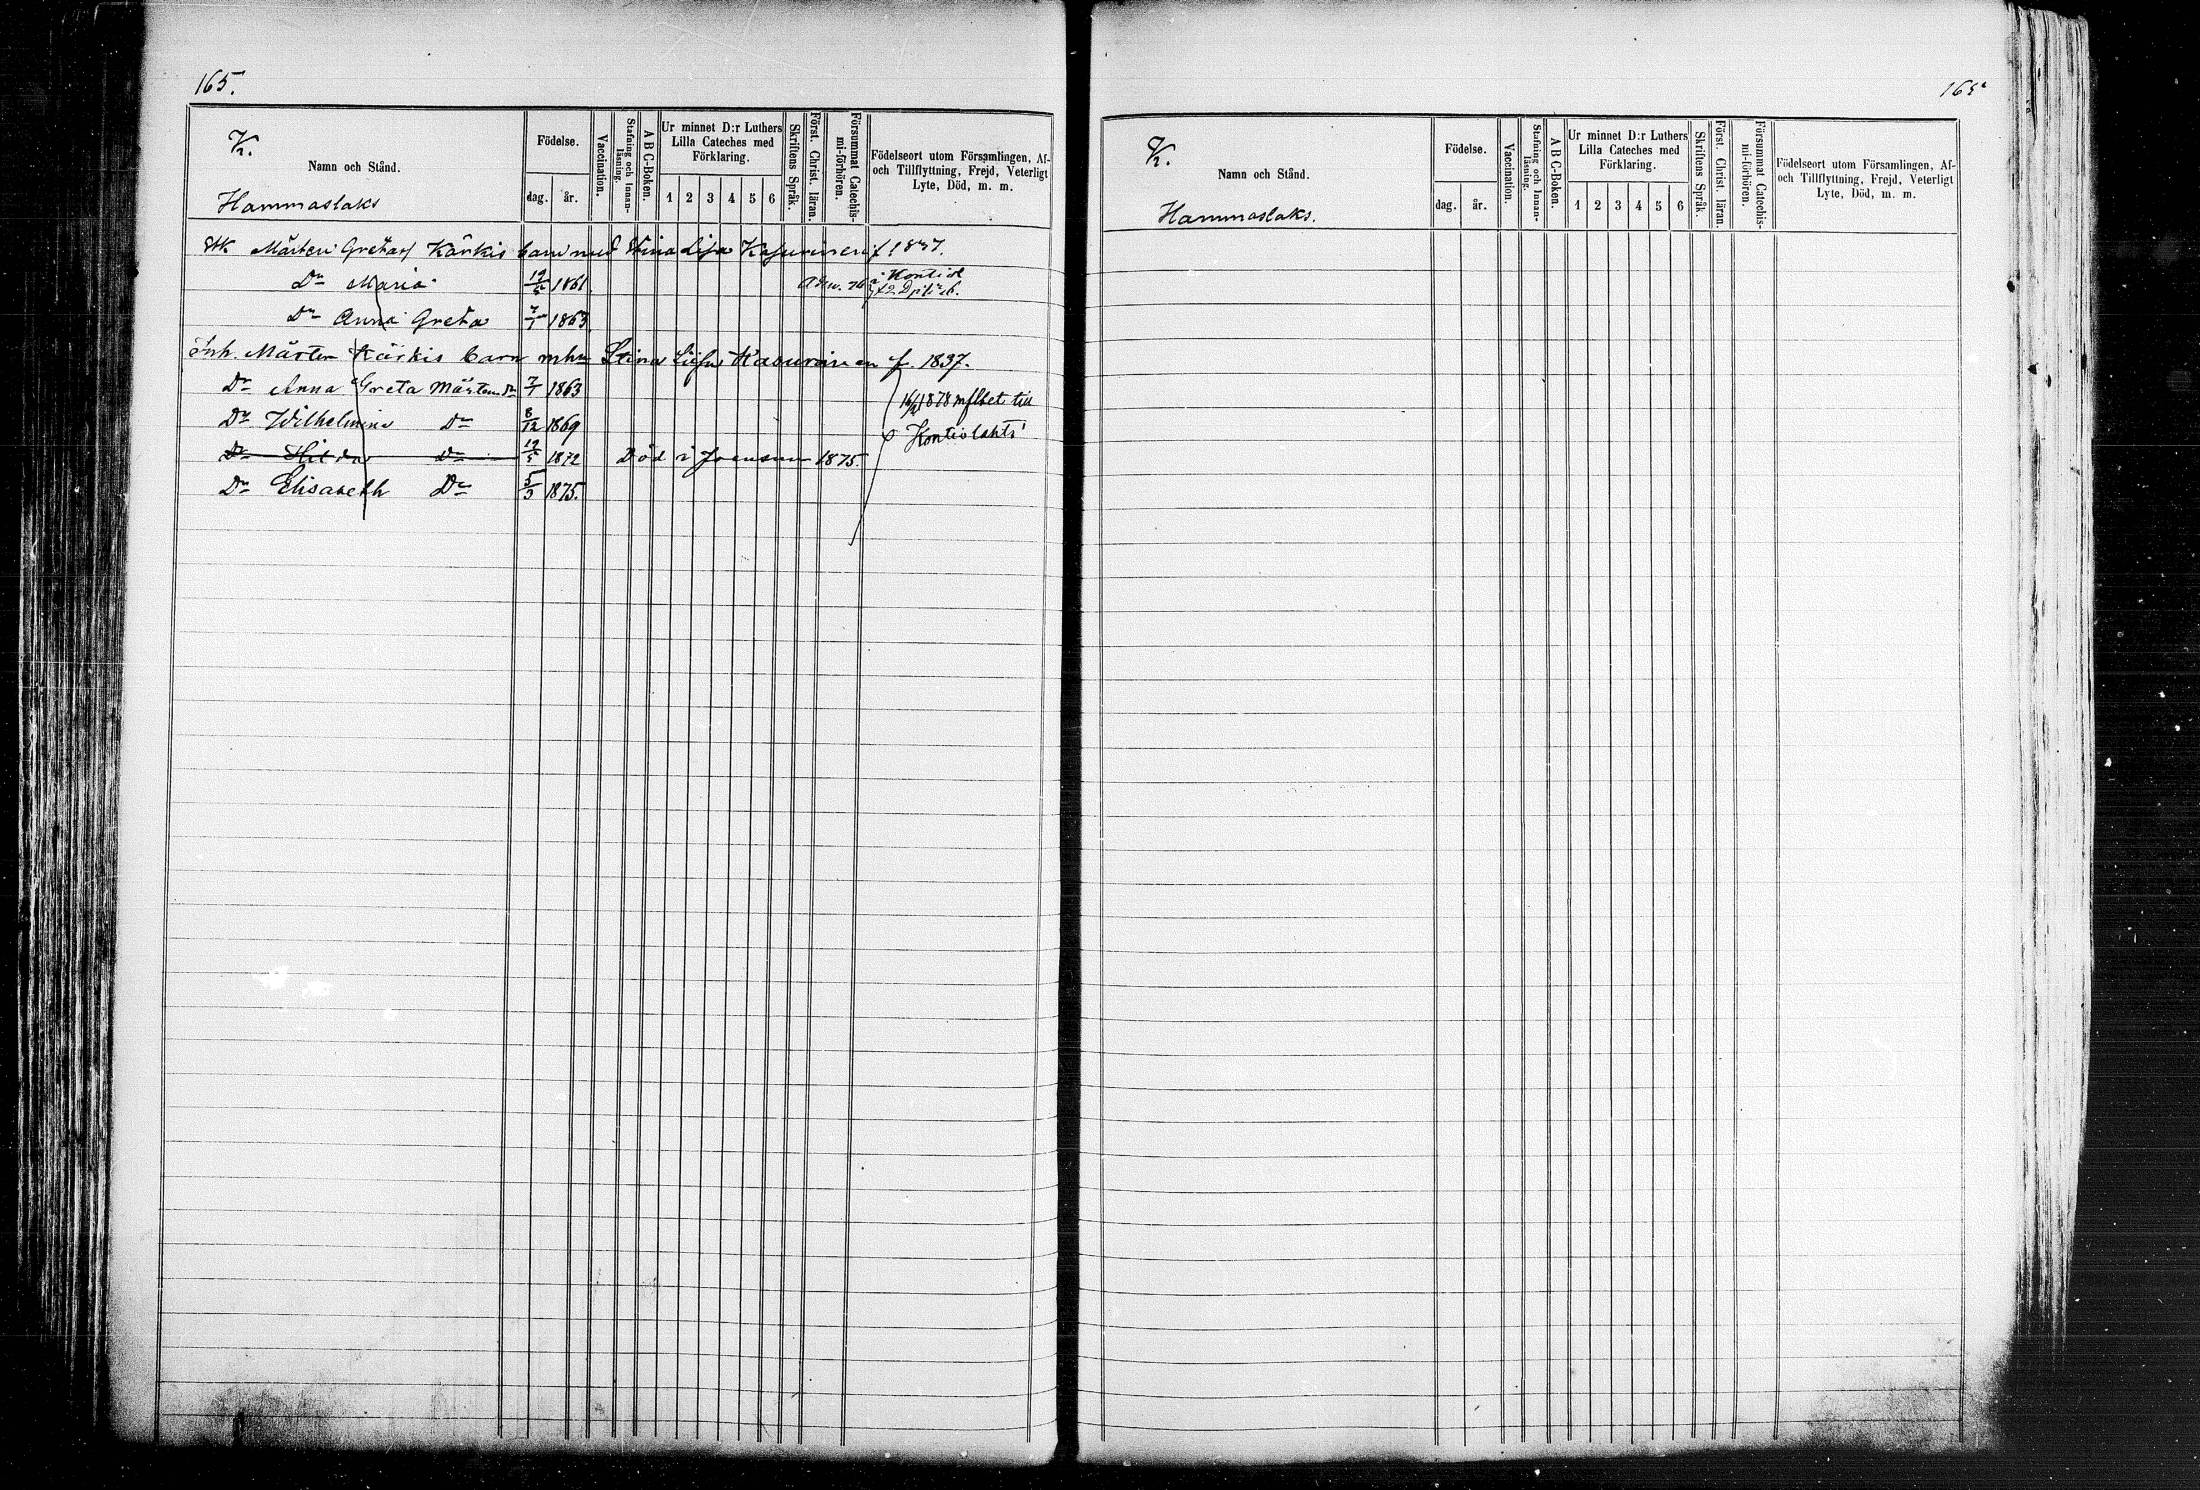 165.
K.
Namn och Stånd.
Hammaslaks
Födelse.
dag. år.
Vaccination.
Stafning och Innan-läsning.
A B C-Boken.
Ur minnet D:r Luthers
Lilla Cateches med
Förklaring.
1 2 3 4 5 6
Skriftens Språk.
Först. Christ. läran.
Försummat Catechis-mi-förhören.
Födelseort utom Församlingen, Af-
och Tillflyttning, Frejd, Veterligt
Lyte, Död, m. m.
Mårten Gretas Kärkis barn med Stina Lisa Kasurinen f. 1837.
Dr Maria 19/5 1861
Dr Anna Greta 7/1 1863
Inh. Mårten Kärkis barn mhu Stina Lisa Kasurinen f. 1837.
Dr Anna Greta Mårtensdr 7/1 1863
16/2 1878 mflbet till
Dr Wilhelmina Dr 8/12 1869
Kontiolahti
Dr Hilda Dr 19/5 1872 Död i Joensuu 1875.
Dr Elisabeth Dr 5/3 1875.
165
K.
Namn och Stånd.
Hammaslaks.
Födelse.
dag. år.
Vaccination.
Stafning och Innan-läsning.
A B C-Boken.
Ur minnet D:r Luthers
Lilla Cateches med
Förklaring.
1 2 3 4 5 6
Skriftens Språk.
Först. Christ. läran.
Försummat Catechis-mi-förhören.
Födelseort utom Församlingen, Af-
och Tillflyttning, Frejd, Veterligt
Lyte, Död, m. m.